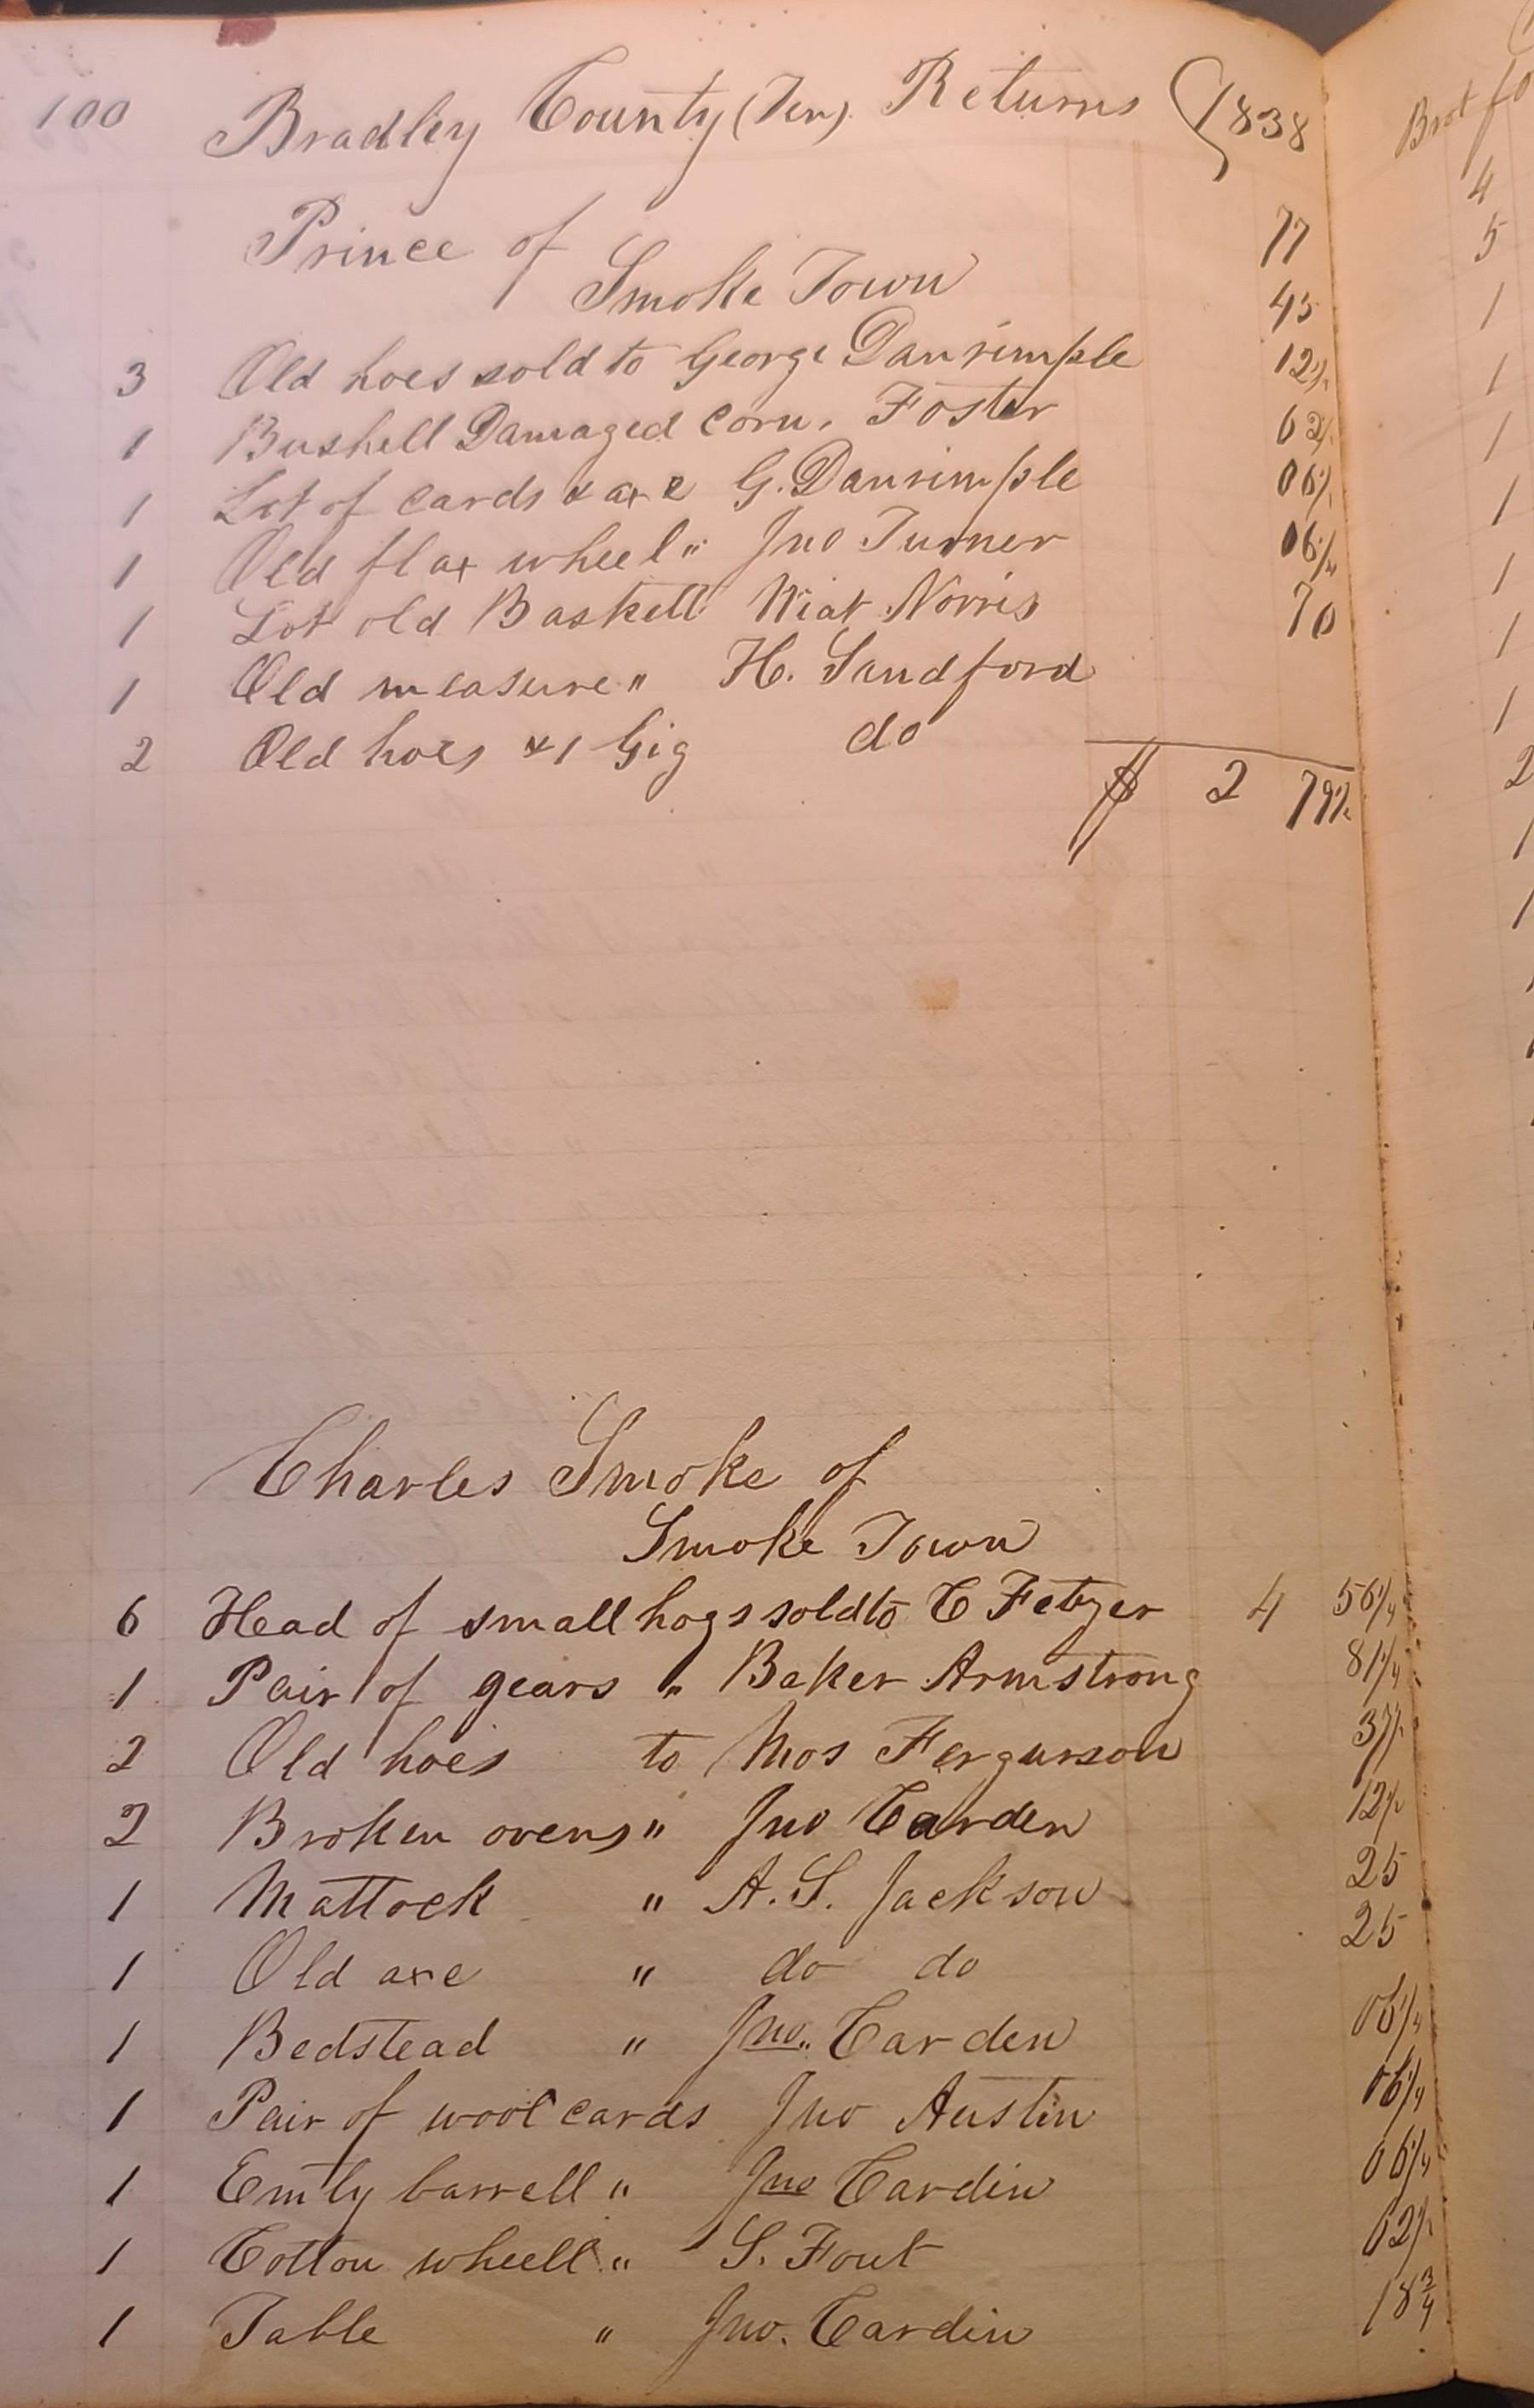 100 Bradley County (Ten) Returns 1838
Prince of
Smoke Town
3 Old hoes sold to George Danrimple 77
1 Bushell Damaged Corn, Foster 45
1 Lot of cards & axe G. Danrimple 12½
1 Old flax wheel " Jno Turner 62½
1 Lot old Baskett Wiat Norris 06¼
1 Old measure " H. Sandford 06¼
2 Old hoes & 1 Gig do 70
$ 2 79½
Charles Smoke of
Smoke Town
6 Head of small hogs sold to C Fetzer 4 56¼
1 Pair of gears " Baker Armstrong 81¼
2 Old hoes to Mos Fergurson 37½
2 Broken ovens " Jno Carden 12½
1 Mattock " A. S. Jackson 25
1 Old axe " do do 25
1 Bedstead " Jno. Carden 06¼
1 Pair of wool cards Jno Austin 06¼
1 Emty barrell " Jno Cardin 06¼
1 Cotton wheell " S. Fout 62½
1 Table " Jno. Cardin 18¾
Brot fo
4
5
1
1
1
1
1
1
1
2
1
1